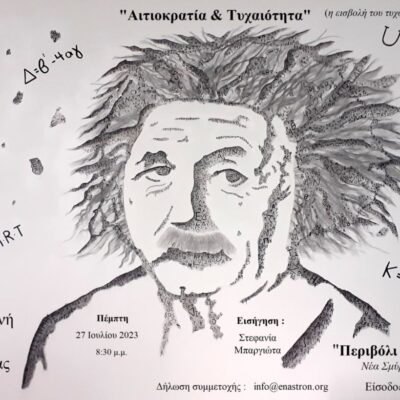 "Αιτιοκρατία & Τυχαιότητα"
(η εισβολή του τυχα
Δ=β²-4αγ
Πέμπτη
27 Ιουλίου 2023
8:30 μ.μ.
Εισήγηση :
Στεφανία
Μπαργιώτα
"Περιβόλι
Νέα Σμύρ
Δήλωση συμμετοχής : info@enastron.org
Είσοδος